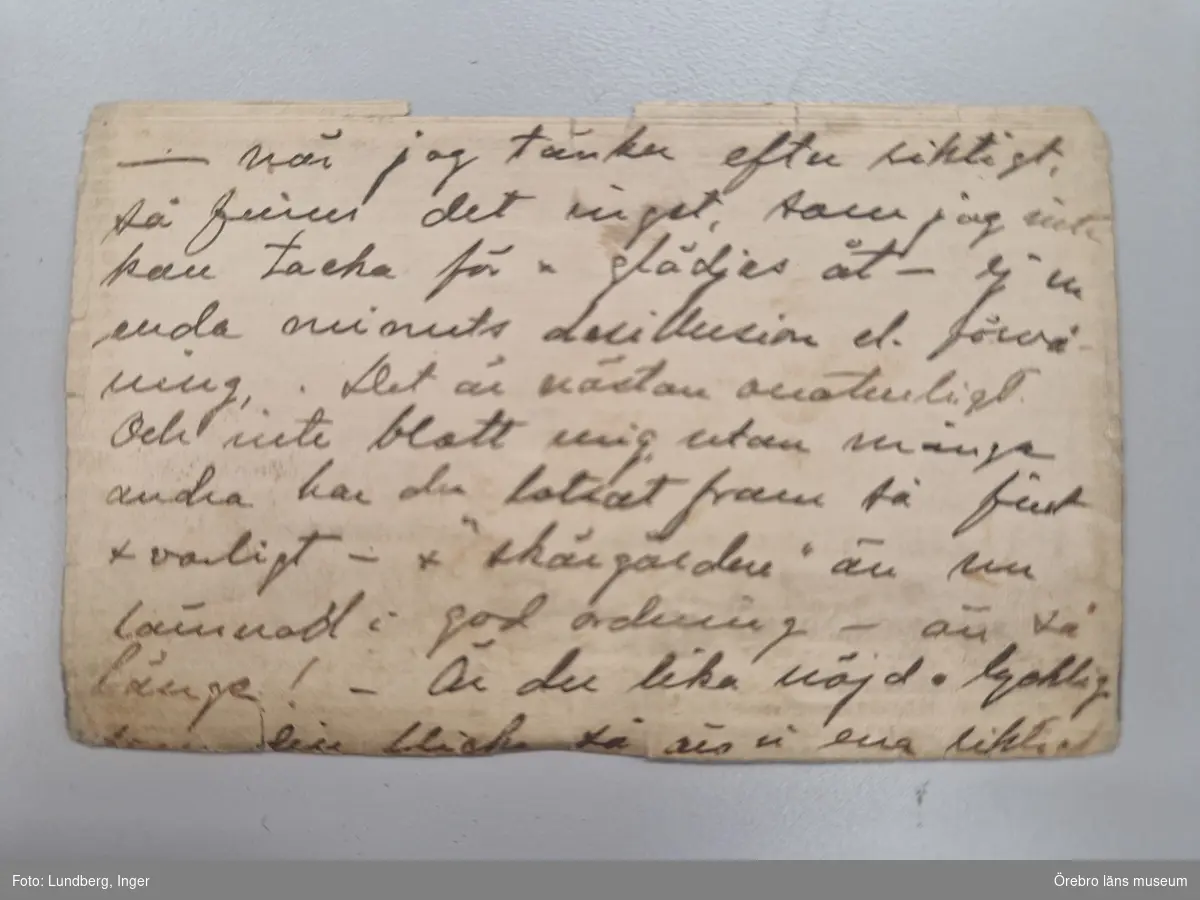 — när jag tänker efter riktigt,
så finns det inget, som jag inte
kan tacka för + glädjas åt – ej en
enda minuts desillusion el. förvå-
ning, . Det är nästan onaturligt.
Och inte blott mig utan många
andra har du lotsat fram så fint
+ varligt – + "skärgården" är nu
lämnad i god ordning – än så
länge! – Är du lika nöjd + lycklig
som din så äro vi ena riktigt
Foto: Lundberg, Inger
Örebro läns museum